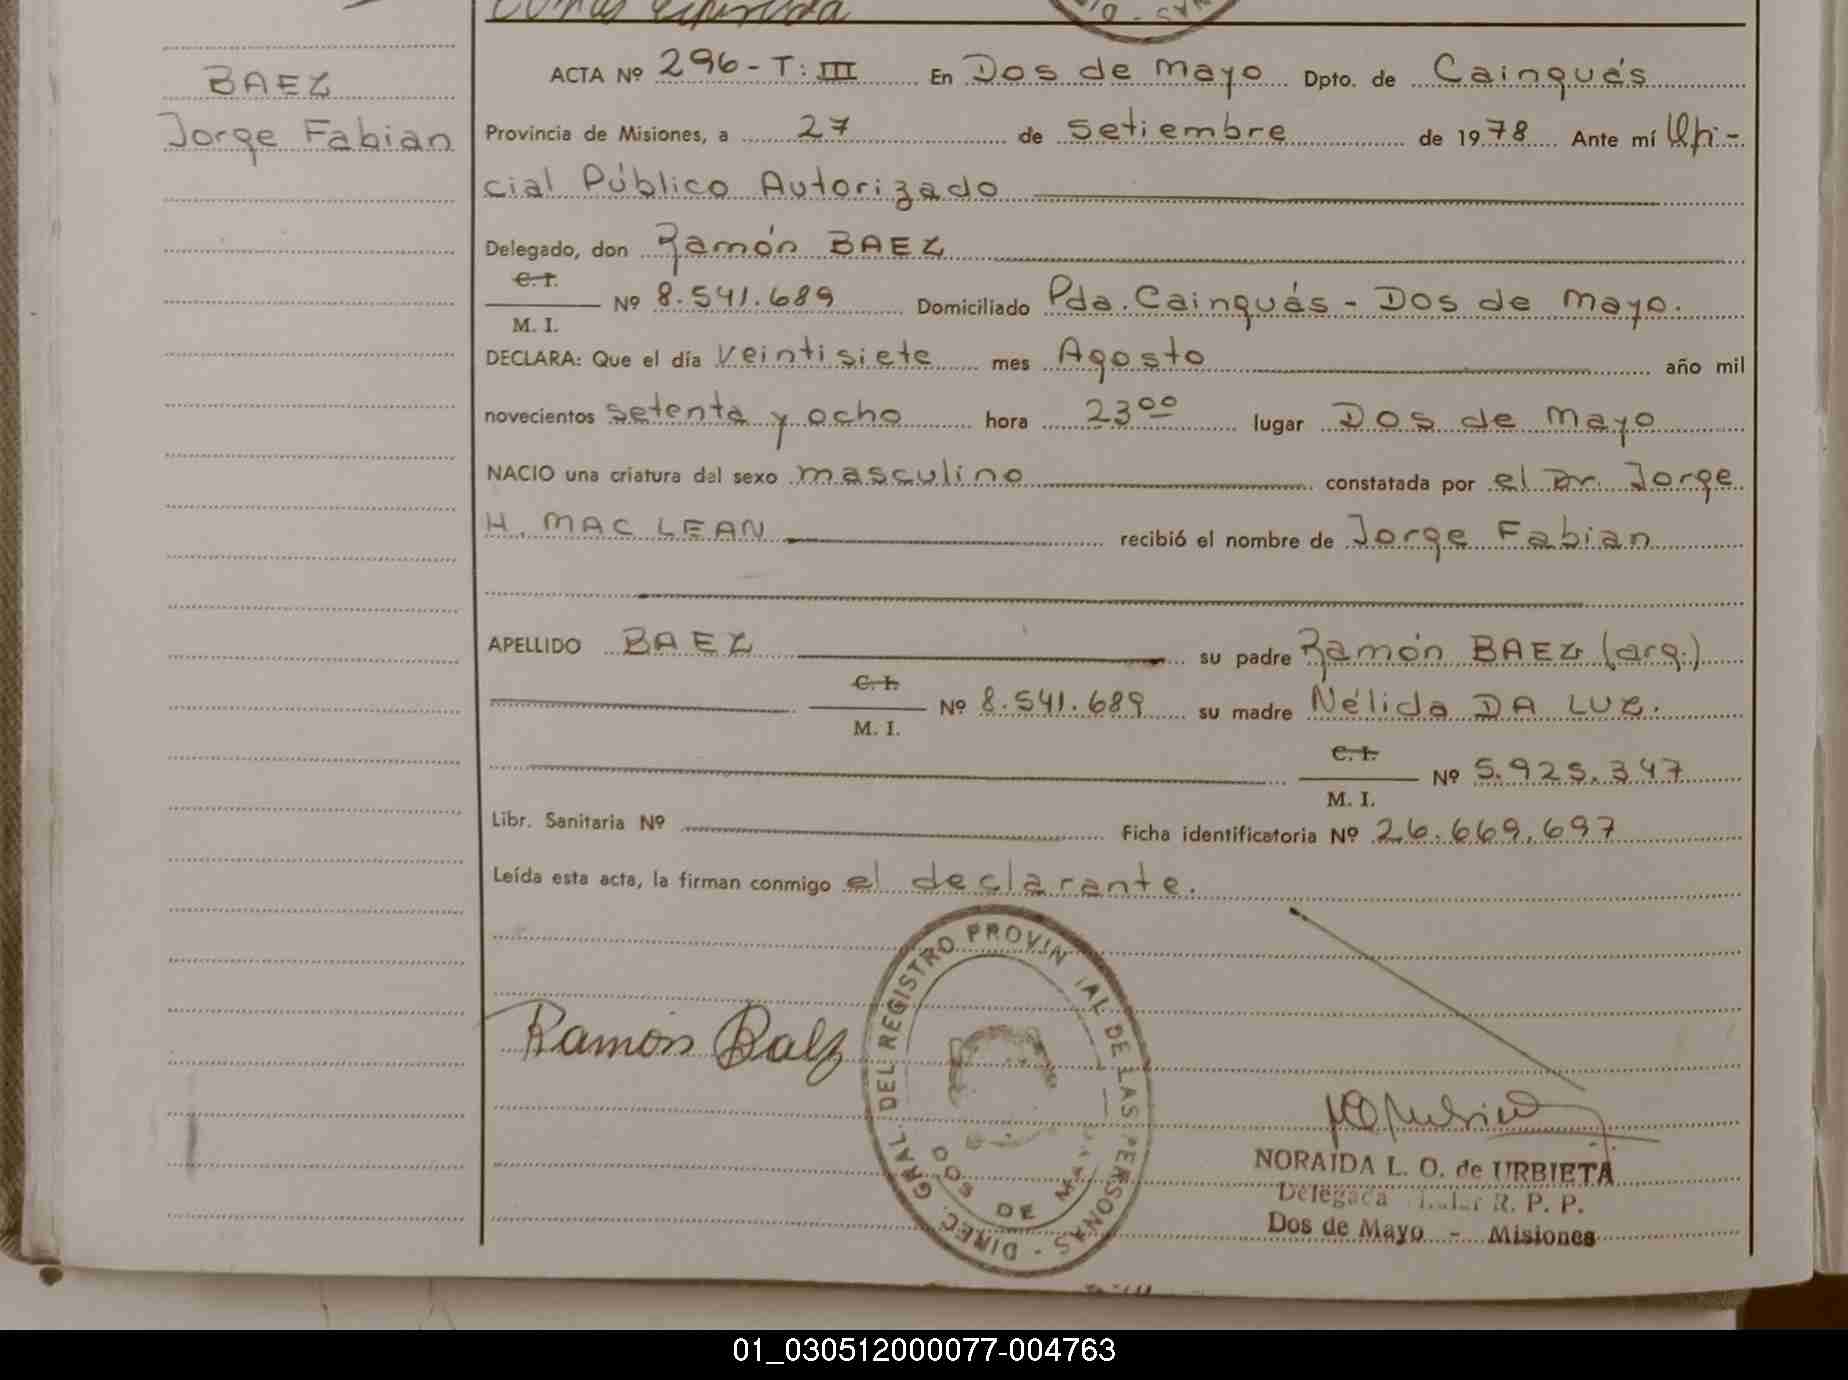 BAEZ
Jorge Fabian
ACTA Nº 296-T: III En Dos de Mayo Dpto. de Cainguás
Provincia de Misiones, a 27 de Setiembre de 1978 Ante mí Ofi-
cial Público Autorizado
Delegado, don Ramón BAEZ
C. I.
Nº 8.541.689 Domiciliado Pda. Cainguás - Dos de Mayo.
M. I.
DECLARA: Que el día veintisiete mes Agosto año mil
novecientos setenta y ocho hora 23⁰⁰ lugar Dos de Mayo
NACIO una criatura del sexo masculino constatada por el Dr. Jorge
H. MAC LEAN recibió el nombre de Jorge Fabian
APELLIDO BAEZ su padre Ramón BAEZ (arg.)
C. I.
Nº 8.541.689 su madre Nélida DA LUZ.
M. I.
C. I.
Nº 5.925.347
M. I.
Libr. Sanitaria Nº Ficha identificatoria Nº 26.669.697
Leída esta acta, la firman conmigo el declarante.
Ramón Baez
DIREC. GRAL. DEL REGISTRO PROVIN IAL DE LAS PERSONAS
DOS DE MAY
NORAIDA L. O. de URBIETA
Delegada R. P. P.
Dos de Mayo - Misiones
01_030512000077-004763